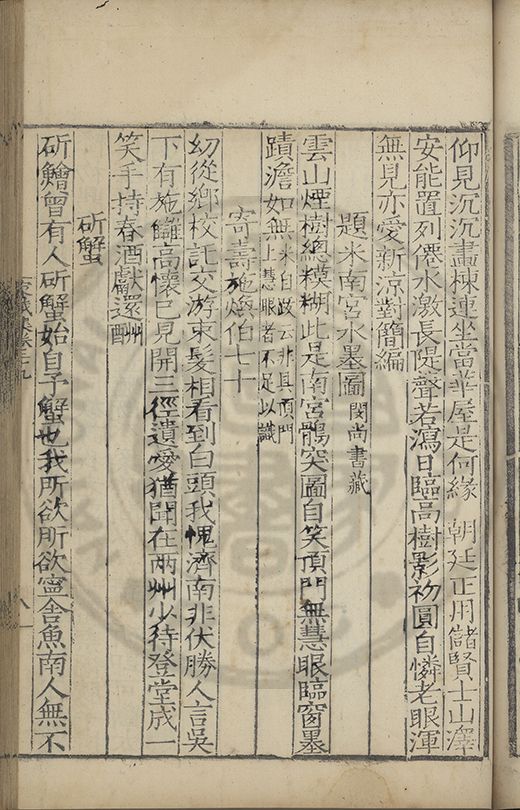 仰見沉沉畫棟連坐當華屋是何緣　朝廷正用儲賢士山澤
安能置列僊水激長隄聲若瀉日臨高樹影初圓自憐老眼渾
無見亦愛新涼對簡編
題米南宮水墨圖閔尚書藏
雲山煙樹總糢糊此是南宮鶻突圖自笑頂門無慧眼臨窗墨
蹟澹如無米自跋云非具頂門上慧眼者不足以識
寄壽施煥伯七十
幼從鄉校託交游束髮相看到白頭我愧濟南非伏勝人言吳
下有施讎高懷已見開三徑遺愛猶聞在兩州少待登堂成一
笑手持春酒獻還酬
斫蟹
斫鱠曾有人斫蟹始自予蟹也我所欲所欲寧舍魚南人無不